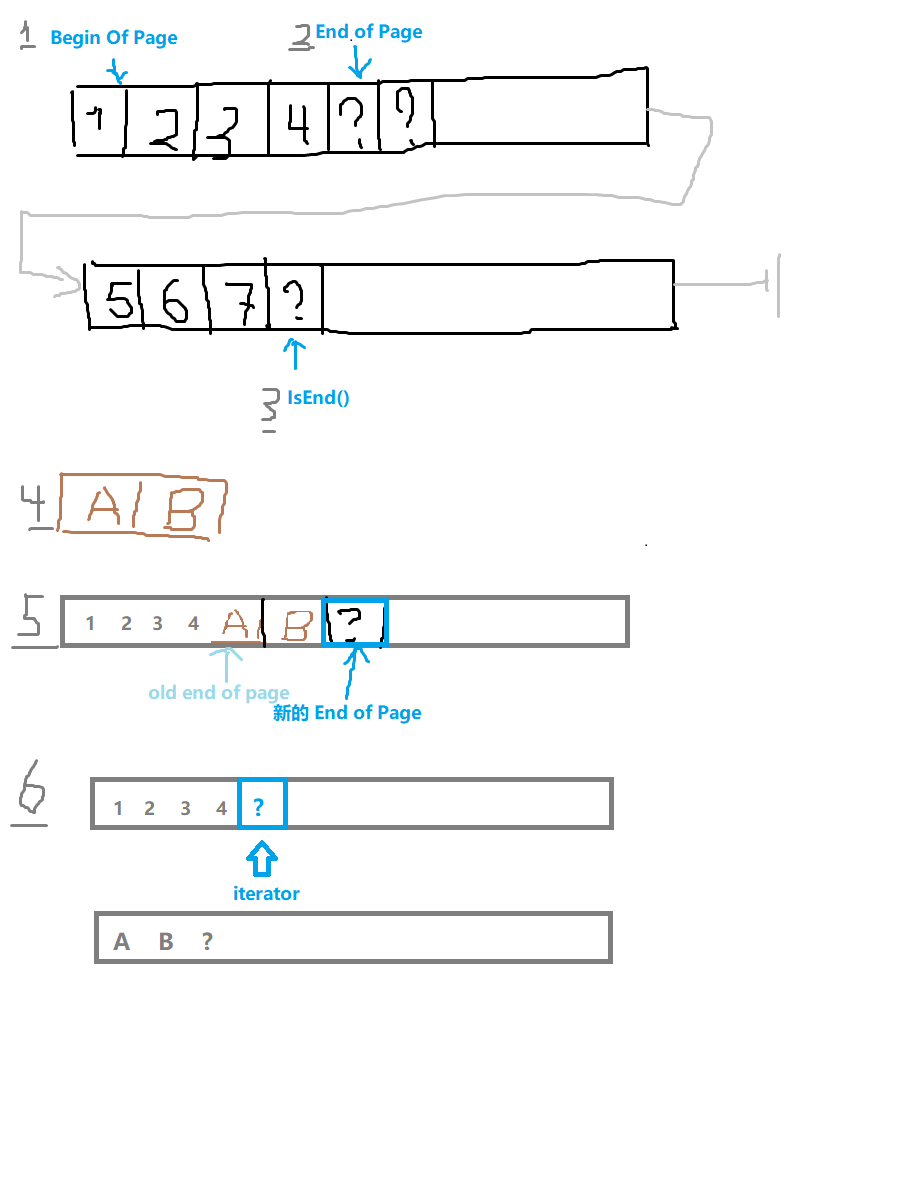 1 Begin Of Page
2 End of Page
1 2 3 4 ? ?
5 6 7 ?
3 IsEnd()
4 A B
5 1 2 3 4 A B ?
old end of page
新的 End of Page
6
1 2 3 4 ?
iterator
A B ?